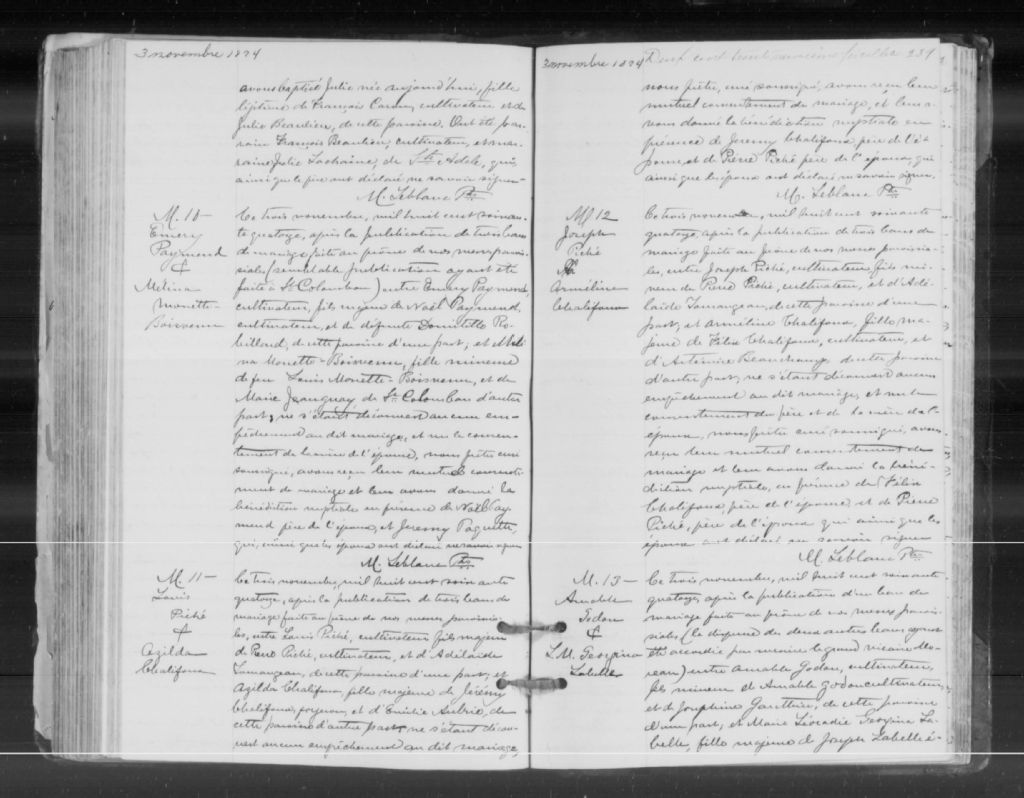 3 novembre 1874
avons baptisé Julie née aujourd'hui, fille
légitime de François Caron, cultivateur et de
Julie Beaulieu, de cette paroisse. Ont été par-
rain François Beaulieu, cultivateur, et mar-
raine Julie Lachaine, de Ste Adèle, qui
ainsi que le père ont déclaré ne savoir signer
M. Leblanc Ptre
M. 10
Emery
Paymond
&
Melina
Monette-
Boisvenu
Ce trois novembre, mil huit cent soixan-
te quatorze, après la publication de trois bans
de mariage faite au prône de nos messes parois-
siales (semblable publication ayant été
faite à St Colomban) entre Emery Paymond,
cultivateur, fils mineur de Noël Paymond,
cultivateur, et de défunte Domitille Ro-
billard, de cette paroisse d'une part; et Méli-
na Monette-Boisvenu, fille mineure
de feu Louis Monette-Boisvenu, et de
Marie Jeanguay de St Colomban d'autre
part, ne s'étant découvert aucun em-
pêchement au dit mariage, et vu le consen-
tement de la mère de l'épouse, nous prêtre curé
soussigné, avons reçu leur mutuel consente-
ment de mariage et leur avons donné la
bénédiction nuptiale en présence de Noël Pay-
mond père de l'époux, et Jeremy Paquette,
qui, ainsi que les époux ont déclaré ne savoir signer
M. Leblanc Ptre
M. 11
Louis
Piché
&
Azilda
Chalifoux
Ce trois novembre, mil huit cent soixante
quatorze, après la publication de trois bans de
mariage faite au prône de nos messes paroissia-
les, entre Louis Piché, cultivateur fils majeur
de Pierre Piché, cultivateur, et d'Adélaide
Lamangeau, de cette paroisse d'une part; et
Azilda Chalifoux, fille majeure de Jérémy
Chalifoux, forgeron, et d'Emilie Aubrie, de
cette paroisse d'autre part, ne s'étant décou-
vert aucun empêchement au dit mariage,
3 novembre 1874
Deux cent trente neuvième feuillet 239
nous prêtre, curé soussigné, avons reçu leur
mutuel consentement de mariage, et leur a-
vons donné la bénédiction nuptiale en
présence de Jeremy Chalifoux père de l'é-
pouse, et de Pierre Piché père de l'époux, qui
ainsi que les époux ont déclaré ne savoir signer.
M. Leblanc Ptre
M 12
Joseph
Piché
&
Arméline
Chalifoux
Ce trois novembre, mil huit cent soixante
quatorze, après la publication de trois bans de
mariage faite au prône de nos messes paroissia-
les, entre Joseph Piché, cultivateur, fils mi-
neur de Pierre Piché, cultivateur, et d'Adé-
laide Lamangeau, de cette paroisse d'une
part, et Arméline Chalifoux, fille ma-
jeure de Félix Chalifoux, cultivateur, et
d'Antoinise Beauchamp, de cette paroisse
d'autre part; ne s'étant découvert aucun
empêchement au dit mariage, et vu le
consentement du père et de la mère de l'
époux, nous prêtre curé soussigné, avons
reçu leur mutuel consentement de
mariage et leur avons donné la béné-
diction nuptiale, en présence de Félix
Chalifoux, père de l'épouse, et de Pierre
Piché, père de l'époux qui ainsi que les
époux ont déclaré ne savoir signer
M. Leblanc Ptre
M. 13
Amable
Godon
&
L. M. Georgina
Labelle
Ce trois novembre, mil huit cent soixante
quatorze, après la publication d'un ban de
mariage faite au prône de nos messes parois-
siales, (la dispense des deux autres bans ayant
été accordée par messire le grand vicaire Mo-
reau) entre Amable Godon, cultivateur,
fils mineur de Amable Godon cultivateur,
et de Josephine Gauthier, de cette paroisse
d'une part; et Marie Léocadie Georgina La-
belle, fille majeure de Joseph Labelle é-